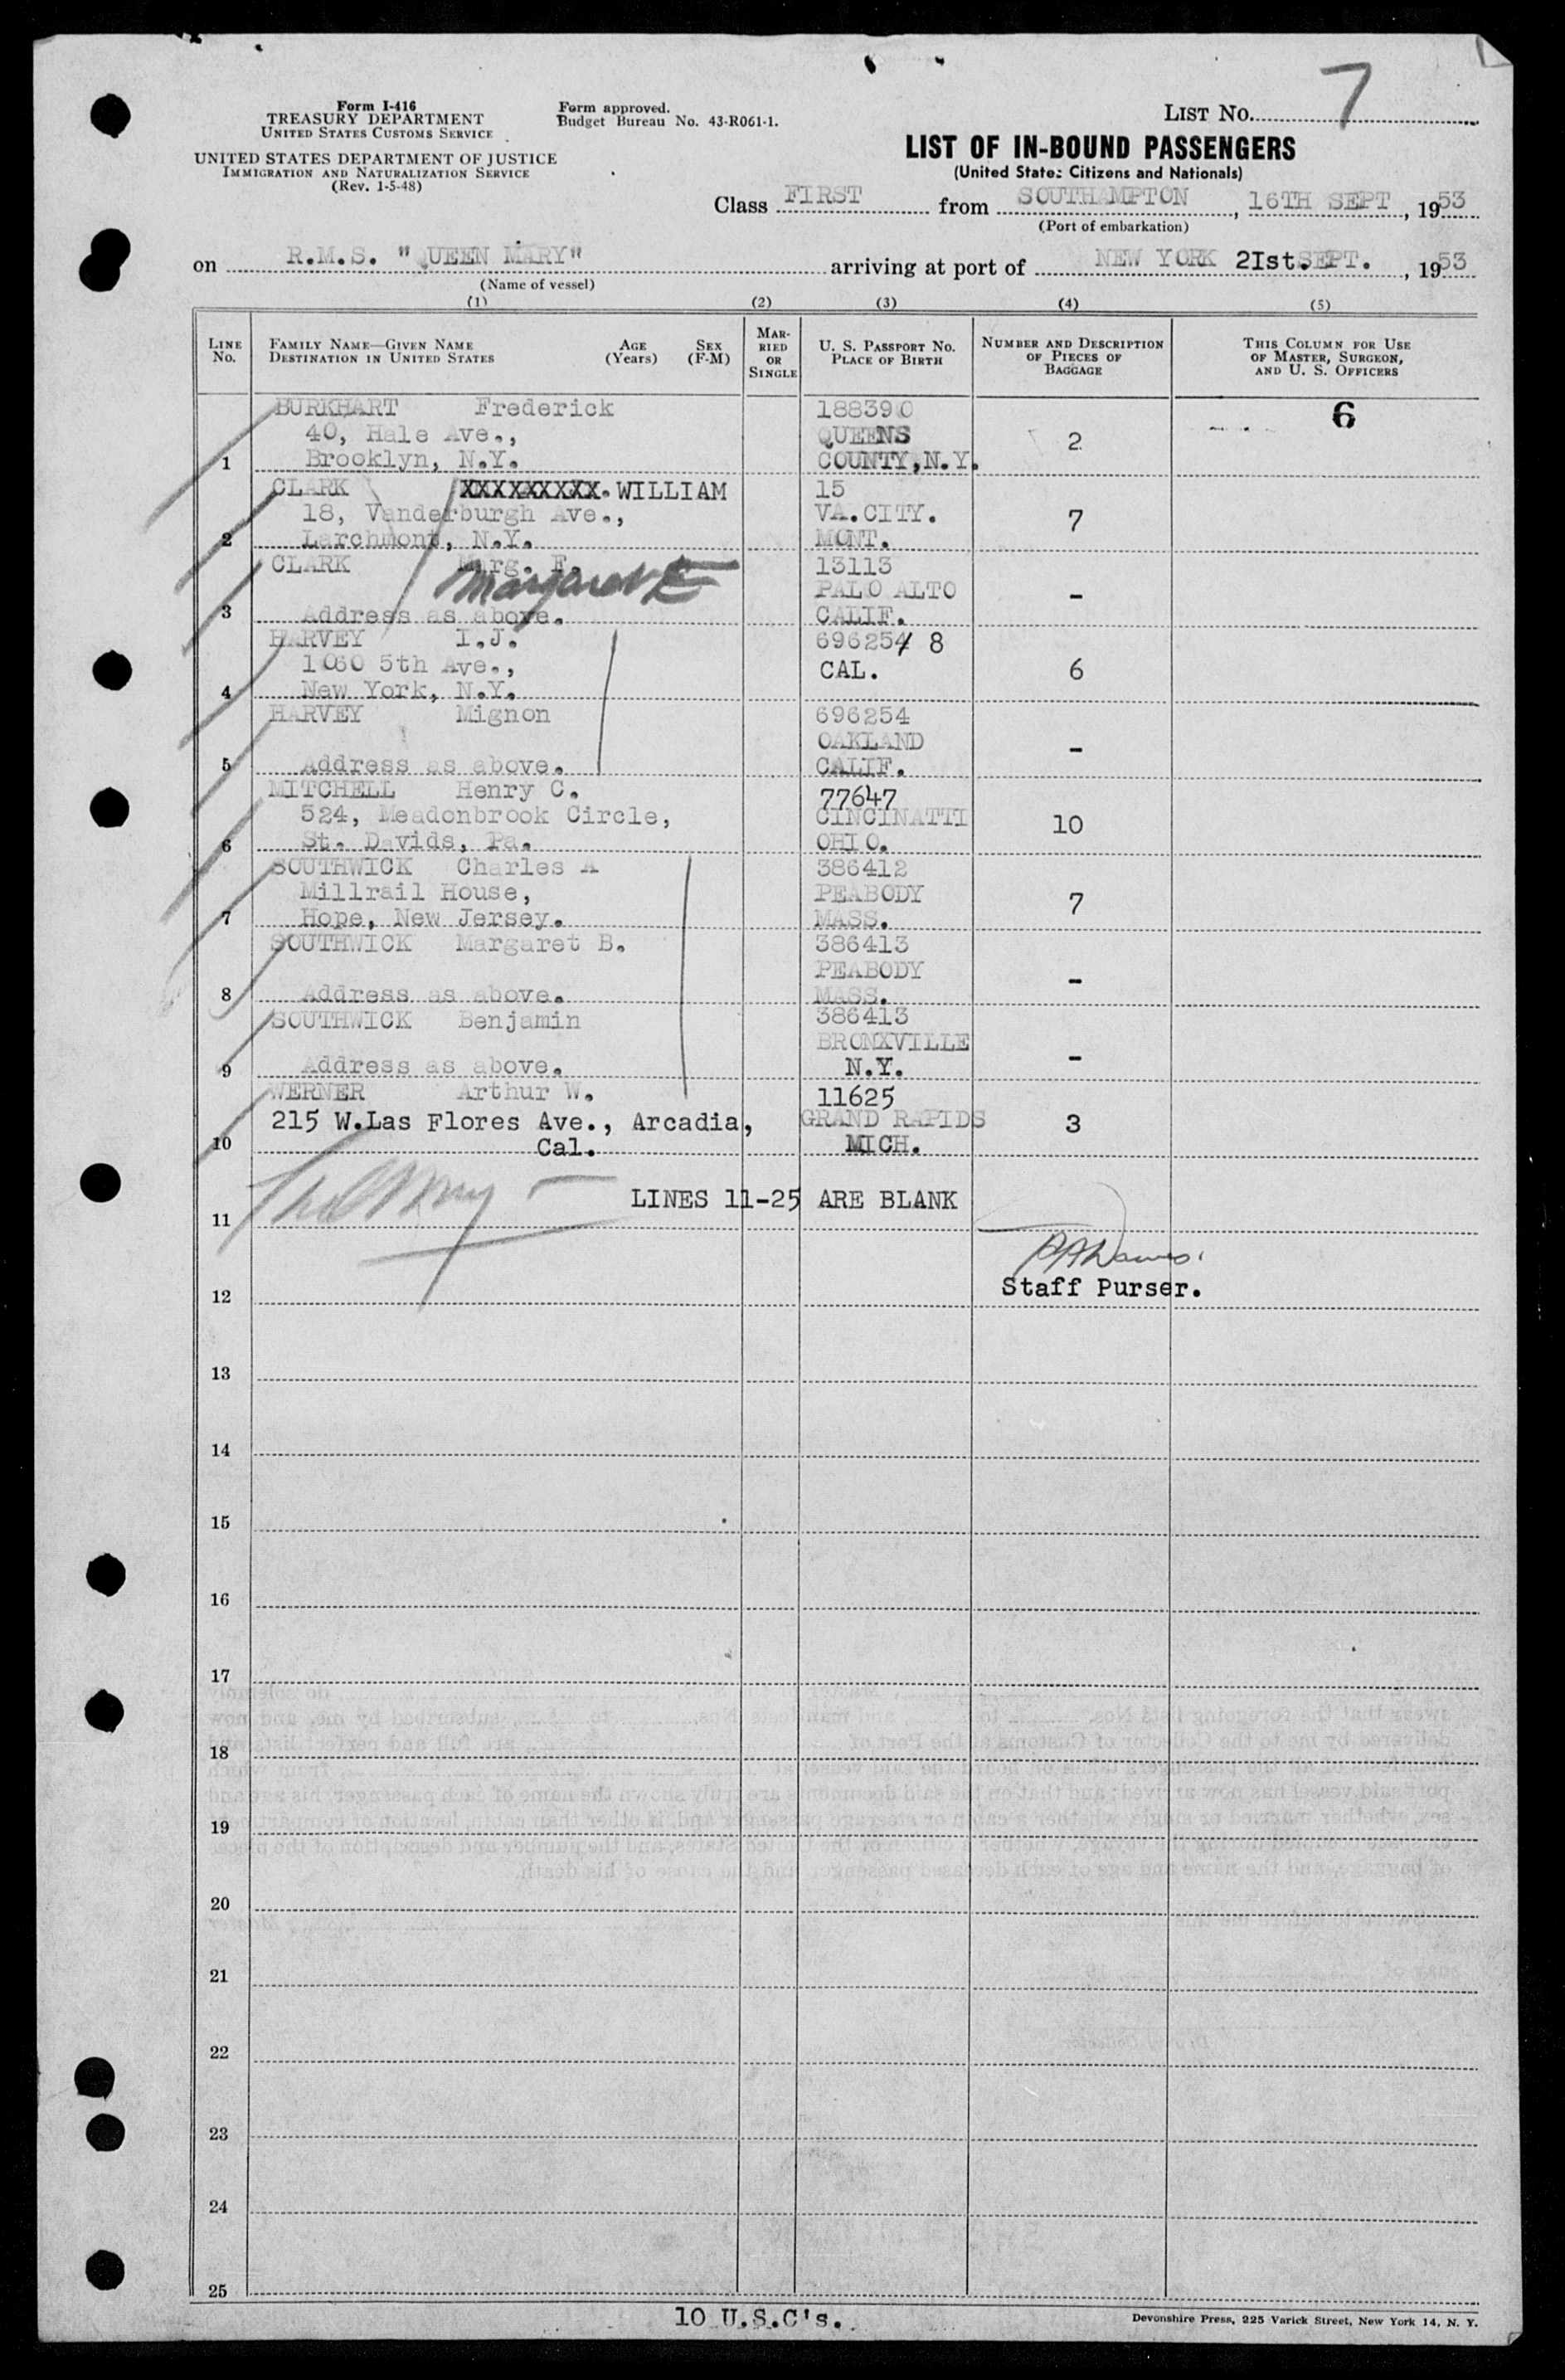 Form I-416
TREASURY DEPARTMENT
UNITED STATES CUSTOMS SERVICE
UNITED STATES DEPARTMENT OF JUSTICE
IMMIGRATION AND NATURALIZATION SERVICE
(Rev. 1-5-48)
Form approved.
Budget Bureau No. 43-R061-1.
LIST NO. 7
LIST OF IN-BOUND PASSENGERS
(United States Citizens and Nationals)
Class FIRST from SOUTHAMPTON, 16TH SEPT, 1953
(Port of embarkation)
on R.M.S. "QUEEN MARY" arriving at port of NEW YORK 2Ist.SEPT., 1953
(Name of vessel)
(1) (2) (3) (4) (5)
LINE NO.
FAMILY NAME—GIVEN NAME
DESTINATION IN UNITED STATES
AGE (Years)
SEX (F-M)
MARRIED OR SINGLE
U. S. PASSPORT NO.
PLACE OF BIRTH
NUMBER AND DESCRIPTION OF PIECES OF BAGGAGE
THIS COLUMN FOR USE OF MASTER, SURGEON, AND U. S. OFFICERS
BURKHART Frederick 188390 6
40, Hale Ave., QUEENS 2
1 Brooklyn, N.Y. COUNTY,N.Y.
CLARK XXXXXXXXX. WILLIAM 15
18, Vanderburgh Ave., VA.CITY. 7
2 Larchmont, N.Y. MONT.
CLARK Marg. E. 13113
Margaret E PALO ALTO -
3 Address as above. CALIF.
HARVEY I.J. 696254 8
1060 5th Ave., CAL. 6
4 New York, N.Y.
HARVEY Mignon 696254
OAKLAND -
5 Address as above. CALIF.
MITCHELL Henry C. 77647
524, Meadonbrook Circle, CINCINATTI 10
6 St. Davids, Pa. OHIO.
SOUTHWICK Charles A 386412
Millrail House, PEABODY 7
7 Hope, New Jersey. MASS.
SOUTHWICK Margaret B. 386413
PEABODY -
8 Address as above. MASS.
SOUTHWICK Benjamin 386413
BRONXVILLE -
9 Address as above. N.Y.
WERNER Arthur W. 11625
215 W.Las Flores Ave., Arcadia, GRAND RAPIDS 3
10 Cal. MICH.
LINES 11-25 ARE BLANK
11
Staff Purser.
12
13
14
15
16
17
18
19
20
21
22
23
24
25
10 U.S.C's.
Devonshire Press, 225 Varick Street, New York 14, N. Y.